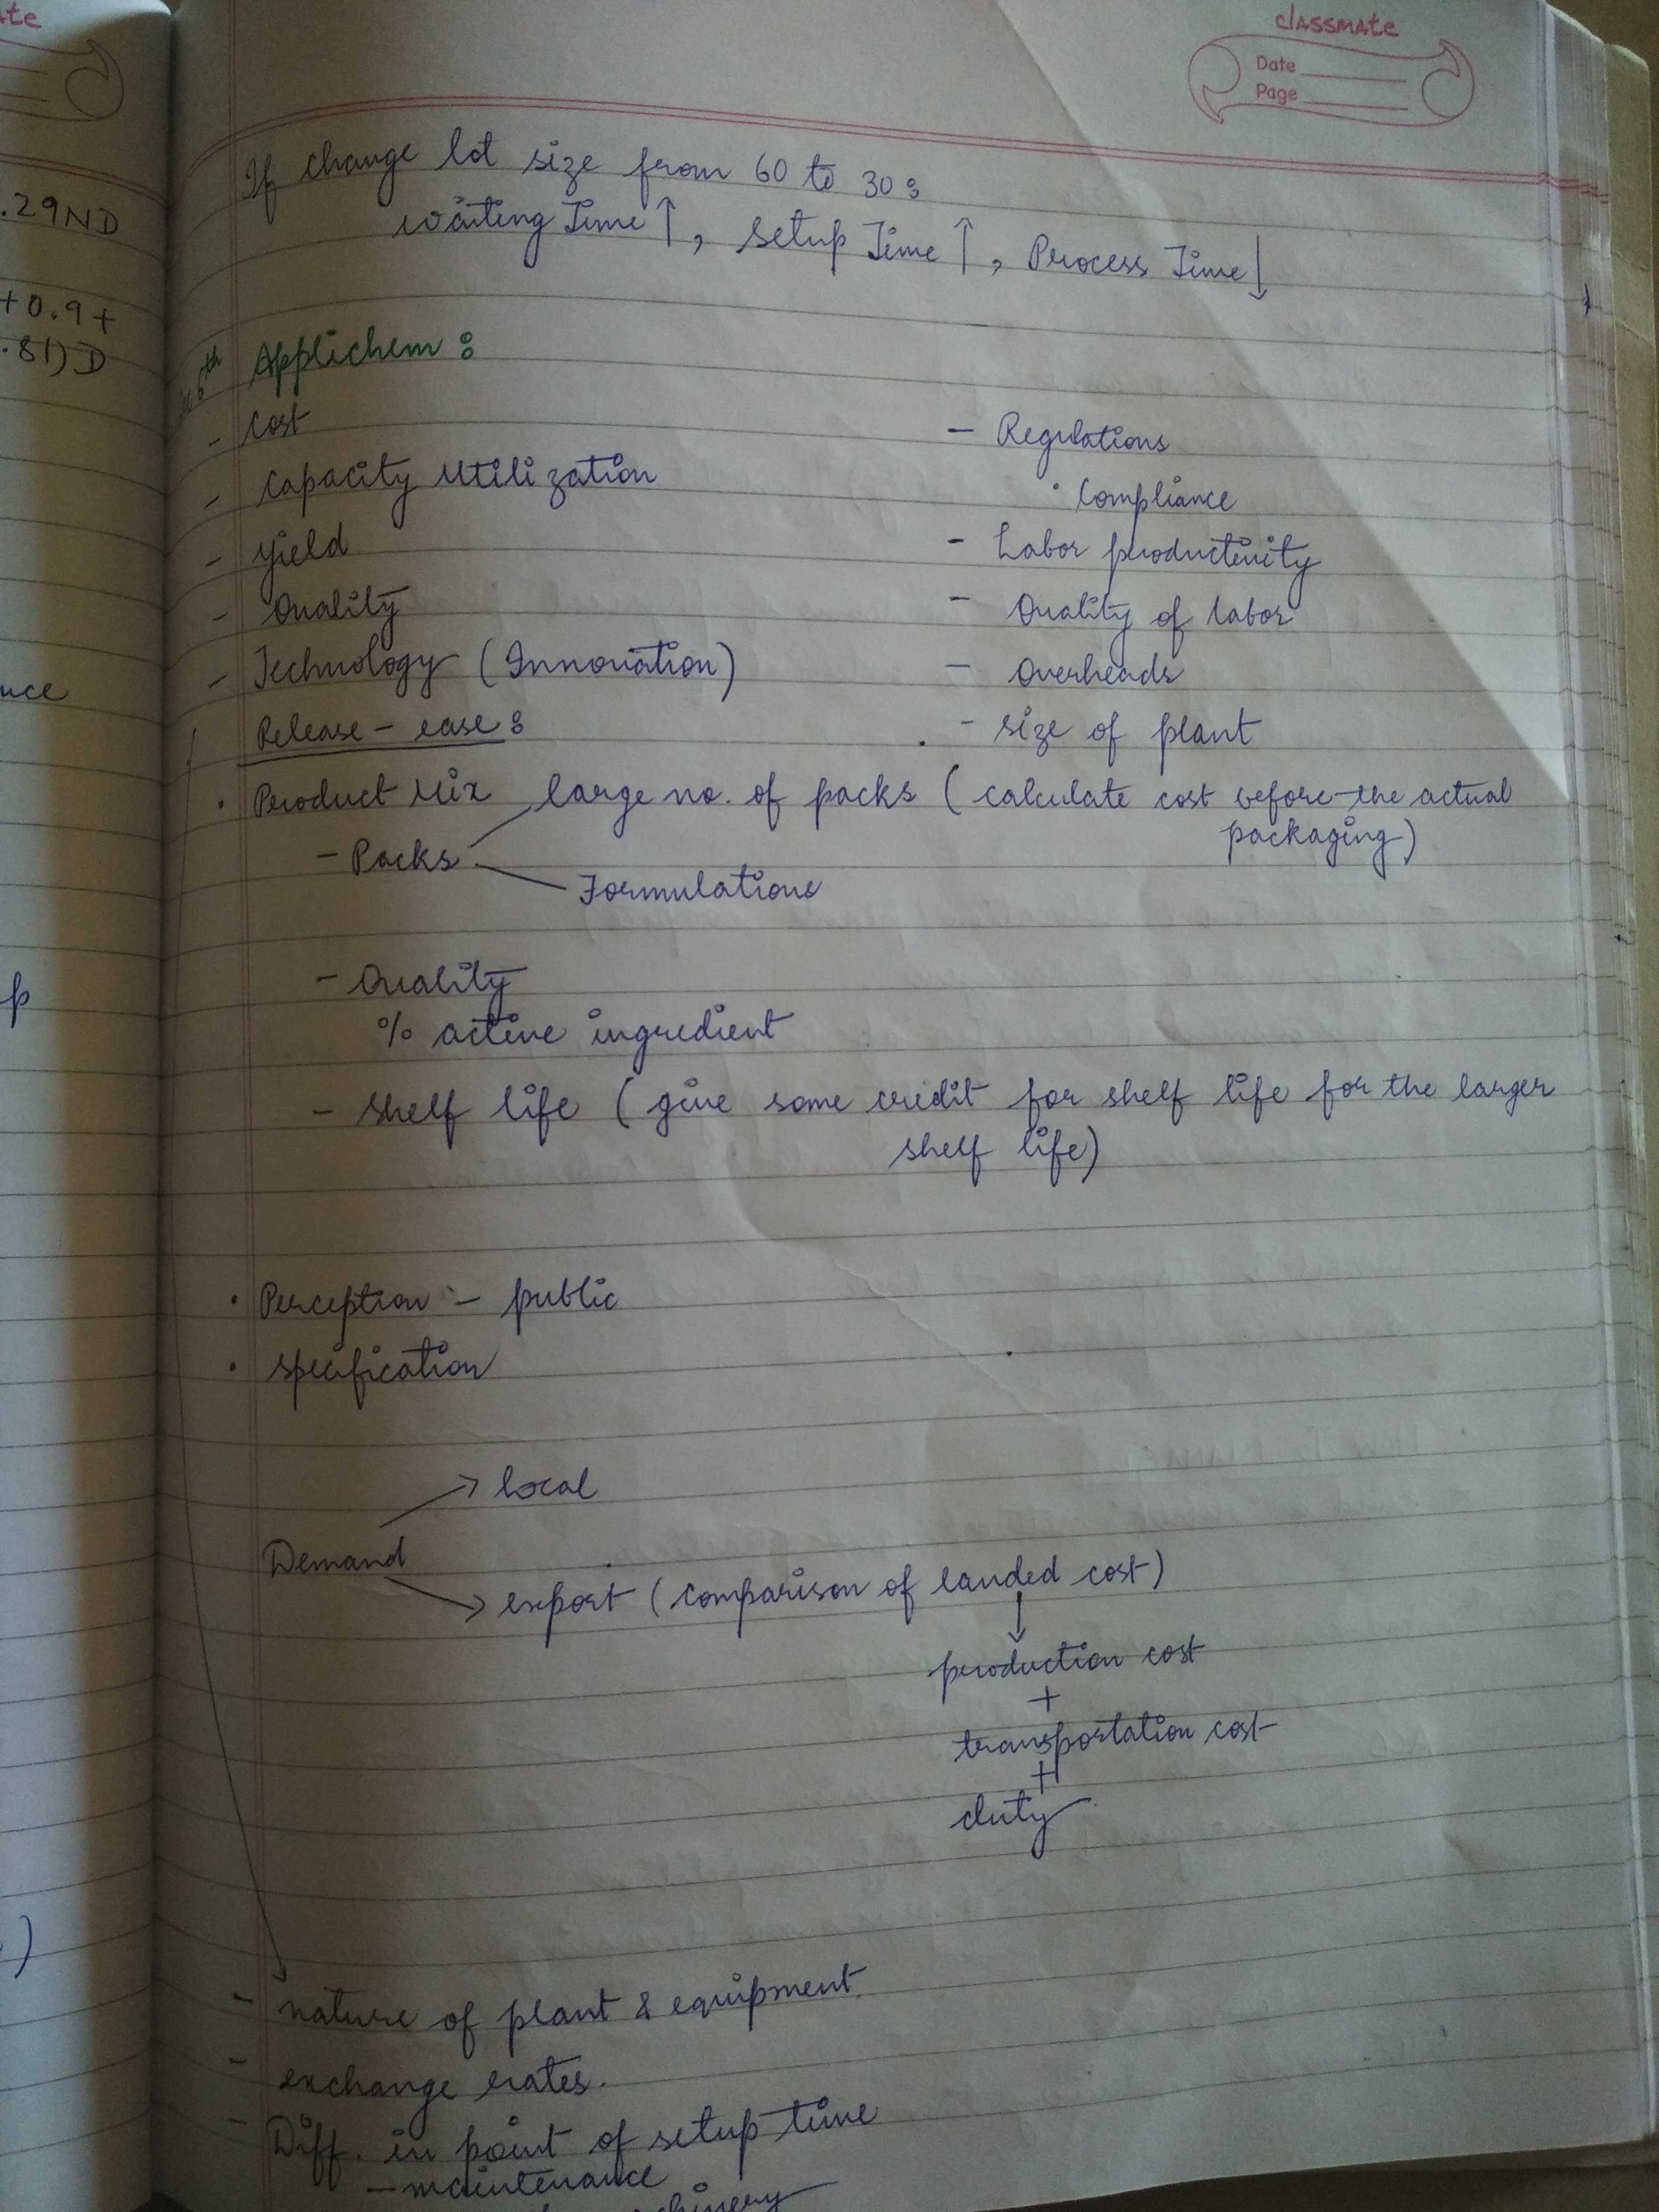 te
.29ND
+0.9+
.81)D
p
)
classmate
Date
Page
If change lot size from 60 to 30 :
waiting Time ↑, Setup Time ↑, Process Time ↓
Applichem :
- Cost
- Capacity Utilization
- Yield
- Quality
- Technology (Innovation)
- Regulations
• Compliance
- Labor productivity
- Quality of labor
- Overheads
- size of plant
Release - ease :
• Product Mix
- Packs
large no. of packs (calculate cost before the actual
packaging)
Formulations
- Quality
% active ingredient
- Shelf life (give some credit for shelf life for the larger
shelf life)
• Perception :- public
• specification
Demand
→ local
→ export (comparison of landed cost)
↓
production cost
+
transportation cost
+
duty
- nature of plant & equipment.
- exchange rates.
- Diff. in point of setup time
- maintenance